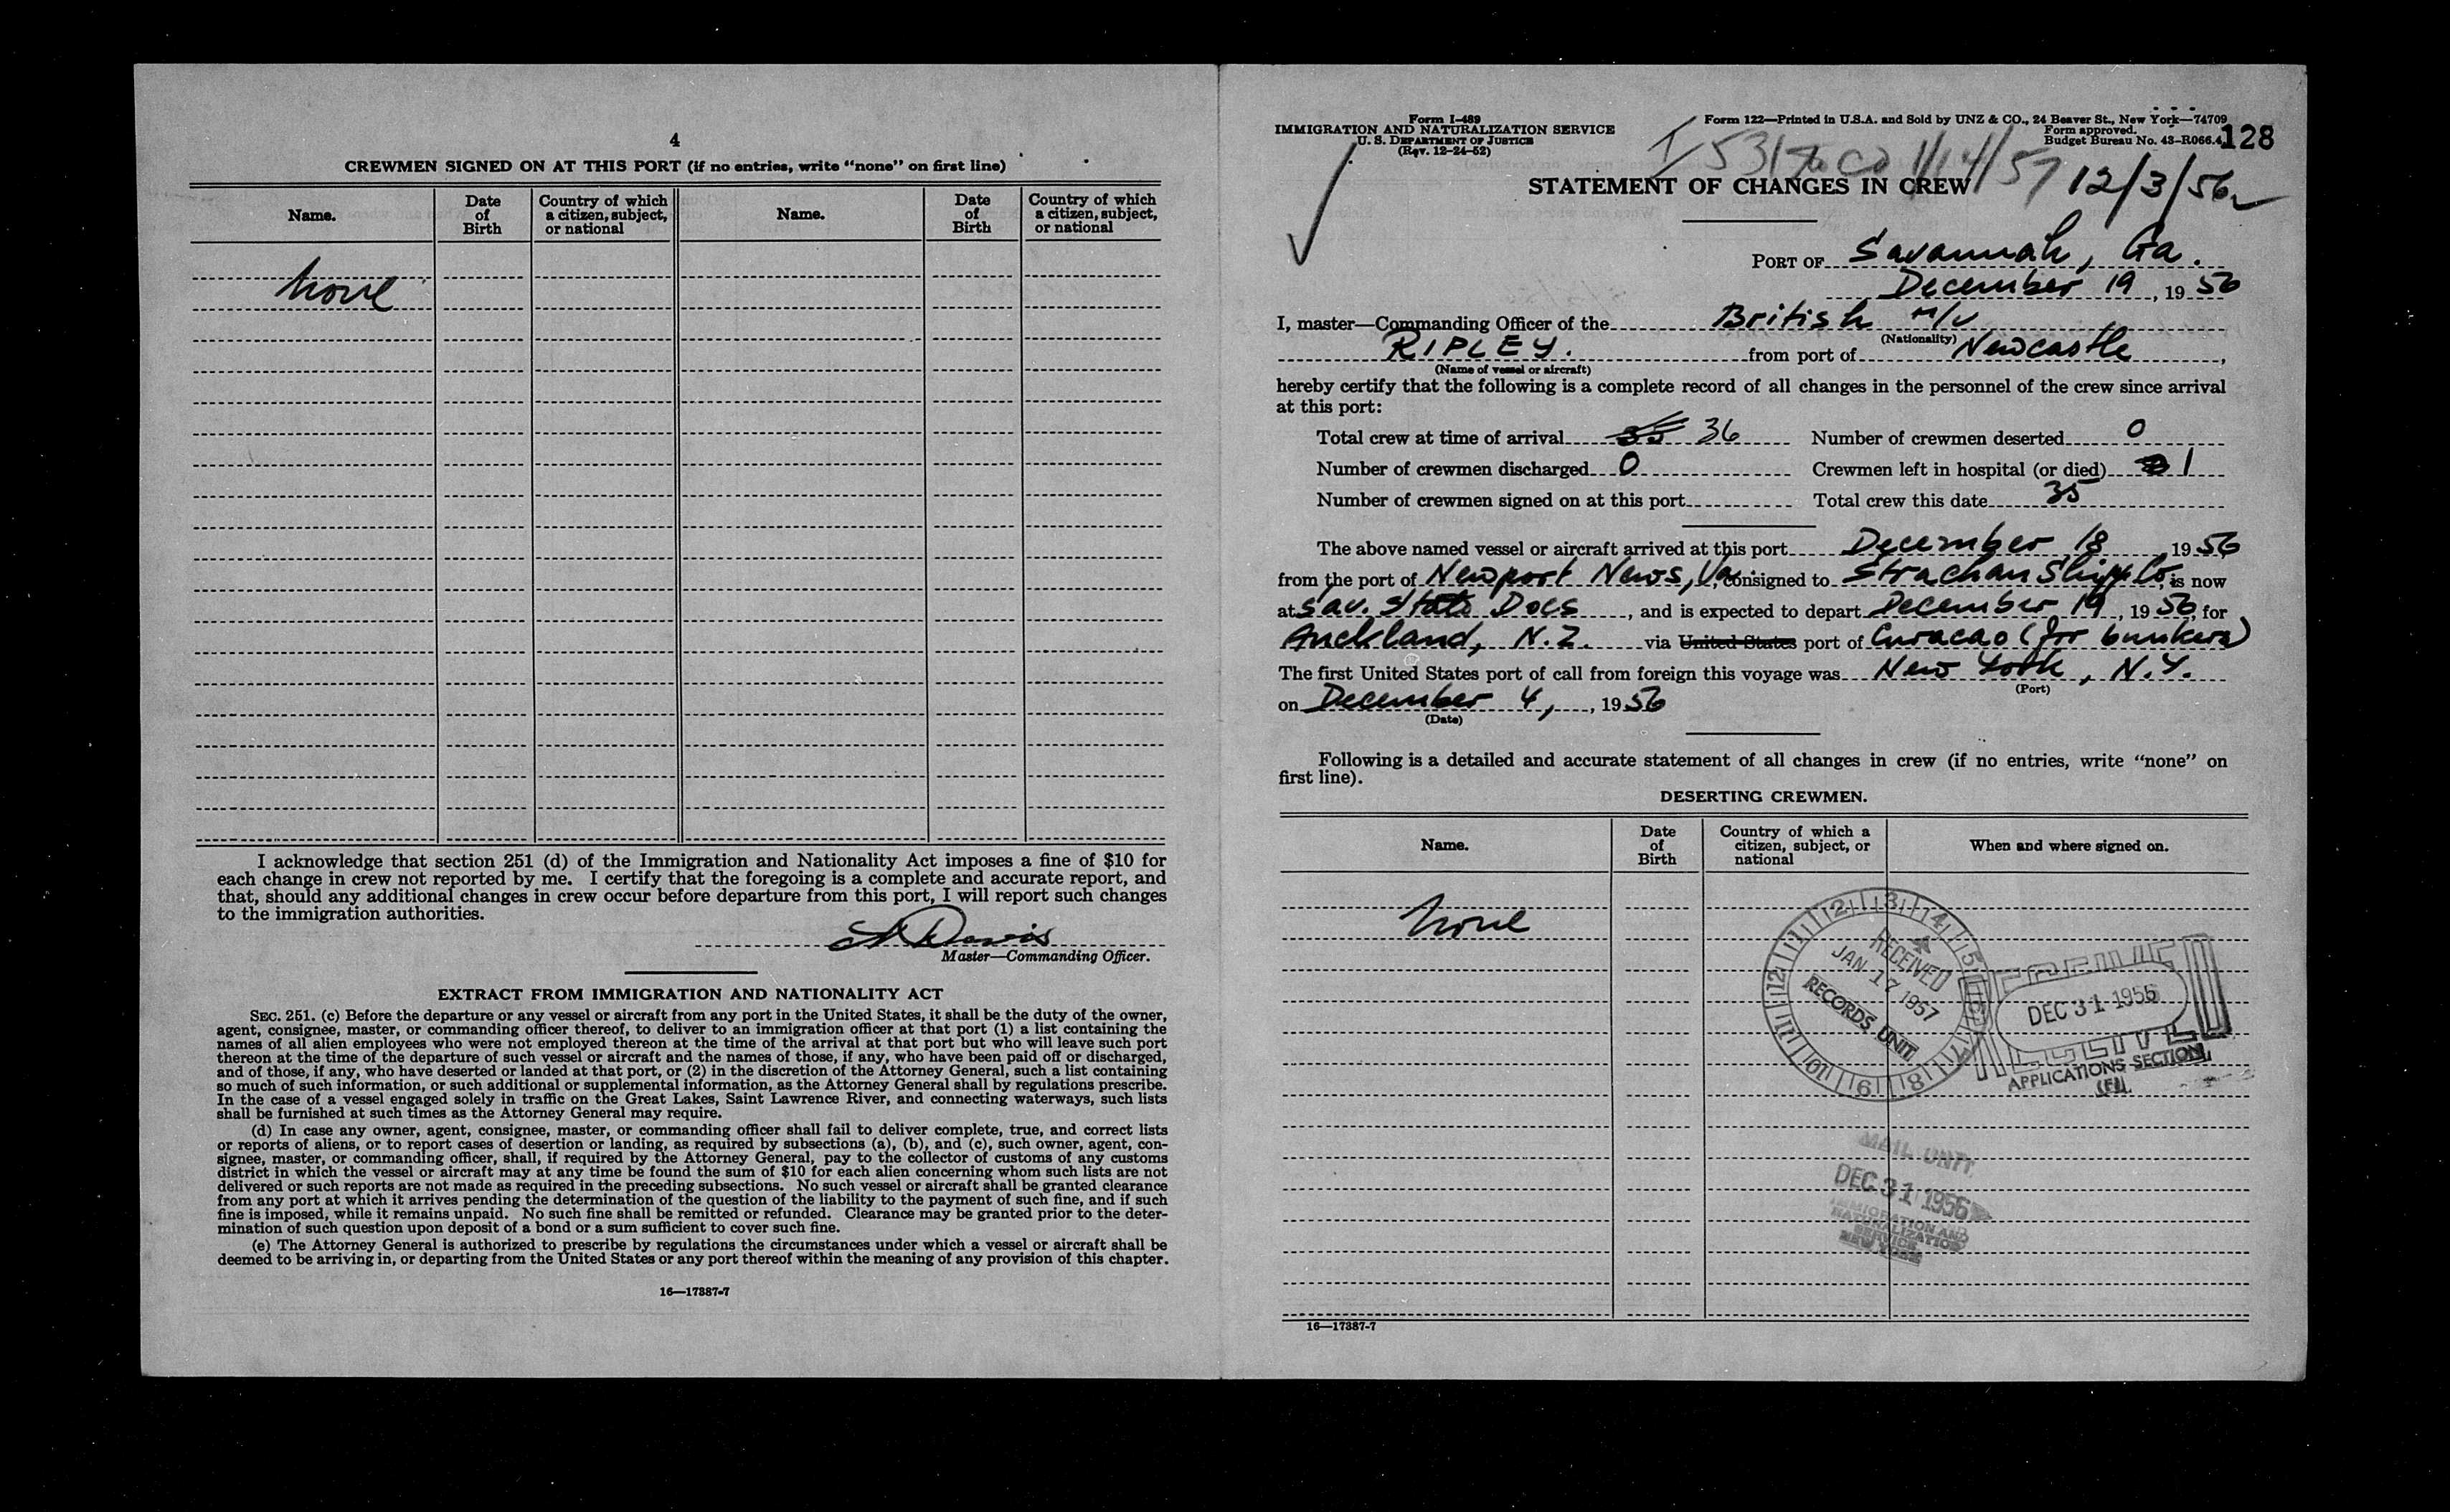 4
CREWMEN SIGNED ON AT THIS PORT (if no entries, write "none" on first line)
Name. Date of Birth Country of which a citizen, subject, or national Name. Date of Birth Country of which a citizen, subject, or national
None
I acknowledge that section 251 (d) of the Immigration and Nationality Act imposes a fine of $10 for
each change in crew not reported by me. I certify that the foregoing is a complete and accurate report, and
that, should any additional changes in crew occur before departure from this port, I will report such changes
to the immigration authorities.
A Davis
Master—Commanding Officer.
EXTRACT FROM IMMIGRATION AND NATIONALITY ACT
SEC. 251. (c) Before the departure or any vessel or aircraft from any port in the United States, it shall be the duty of the owner,
agent, consignee, master, or commanding officer thereof, to deliver to an immigration officer at that port (1) a list containing the
names of all alien employees who were not employed thereon at the time of the arrival at that port but who will leave such port
thereon at the time of the departure of such vessel or aircraft and the names of those, if any, who have been paid off or discharged,
and of those, if any, who have deserted or landed at that port, or (2) in the discretion of the Attorney General, such a list containing
so much of such information, or such additional or supplemental information, as the Attorney General shall by regulations prescribe.
In the case of a vessel engaged solely in traffic on the Great Lakes, Saint Lawrence River, and connecting waterways, such lists
shall be furnished at such times as the Attorney General may require.
(d) In case any owner, agent, consignee, master, or commanding officer shall fail to deliver complete, true, and correct lists
or reports of aliens, or to report cases of desertion or landing, as required by subsections (a), (b), and (c), such owner, agent, con-
signee, master, or commanding officer, shall, if required by the Attorney General, pay to the collector of customs of any customs
district in which the vessel or aircraft may at any time be found the sum of $10 for each alien concerning whom such lists are not
delivered or such reports are not made as required in the preceding subsections. No such vessel or aircraft shall be granted clearance
from any port at which it arrives pending the determination of the question of the liability to the payment of such fine, and if such
fine is imposed, while it remains unpaid. No such fine shall be remitted or refunded. Clearance may be granted prior to the deter-
mination of such question upon deposit of a bond or a sum sufficient to cover such fine.
(e) The Attorney General is authorized to prescribe by regulations the circumstances under which a vessel or aircraft shall be
deemed to be arriving in, or departing from the United States or any port thereof within the meaning of any provision of this chapter.
16—17387-7
Form I-489
IMMIGRATION AND NATURALIZATION SERVICE
U. S. DEPARTMENT OF JUSTICE
(Rev. 12-24-52)
Form 122—Printed in U.S.A. and Sold by UNZ & CO., 24 Beaver St., New York—74709
Form approved.
Budget Bureau No. 43-R066.4
128
1/14/57
STATEMENT OF CHANGES IN CREW
12/3/56
PORT OF Savannah, Ga.
December 19, 1956
I, master—Commanding Officer of the British M/V
(Nationality)
RIPLEY. from port of Newcastle,
(Name of vessel or aircraft)
hereby certify that the following is a complete record of all changes in the personnel of the crew since arrival
at this port:
Total crew at time of arrival 35 36 Number of crewmen deserted 0
Number of crewmen discharged 0 Crewmen left in hospital (or died) 1
Number of crewmen signed on at this port Total crew this date 35
The above named vessel or aircraft arrived at this port December 18, 1956
from the port of Newport News, Va, consigned to Strachan Shipp Co, is now
at Sav. State Docs, and is expected to depart December 19, 1956, for
Auckland, N.Z. via United States port of Curacao (for bunkers)
The first United States port of call from foreign this voyage was New York, N.Y.
(Port)
on December 4, 1956
(Date)
Following is a detailed and accurate statement of all changes in crew (if no entries, write "none" on
first line).
DESERTING CREWMEN.
Name. Date of Birth Country of which a citizen, subject, or national When and where signed on.
None
RECEIVED
JAN 17 1957
RECORDS UNIT
DEC 31 1956
APPLICATIONS SECTION
MAIL UNIT
DEC 31 1956
IMMIGRATION AND
NATURALIZATION
SERVICE
NEW YORK
16—17387-7